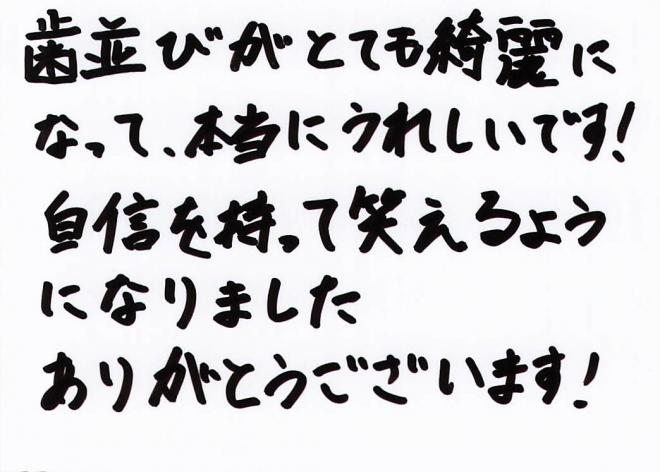 歯並びがとても綺麗に
なって、本当にうれしいです!
自信を持って笑えるよう
になりました
ありがとうございます!